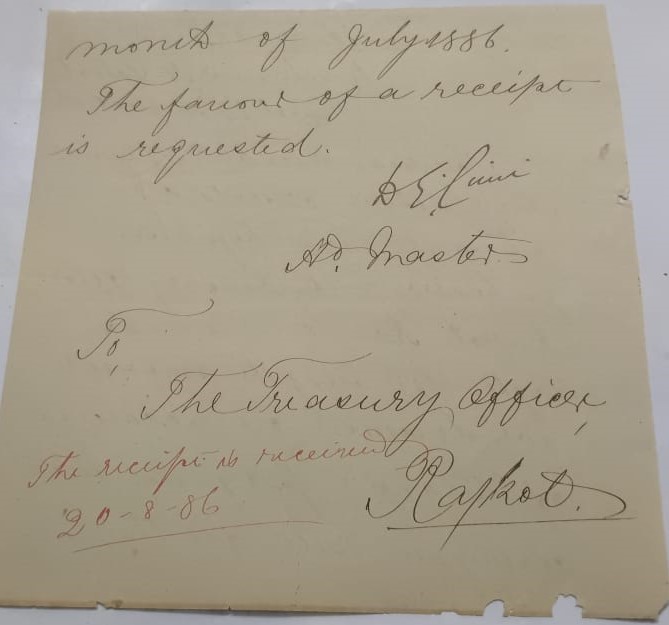 month of July 1886.
The favour of a receipt
is requested.
D E.
Hd. Master
To,
The Treasury Officer,
Rajkot.
The receipt is received
20-8-86